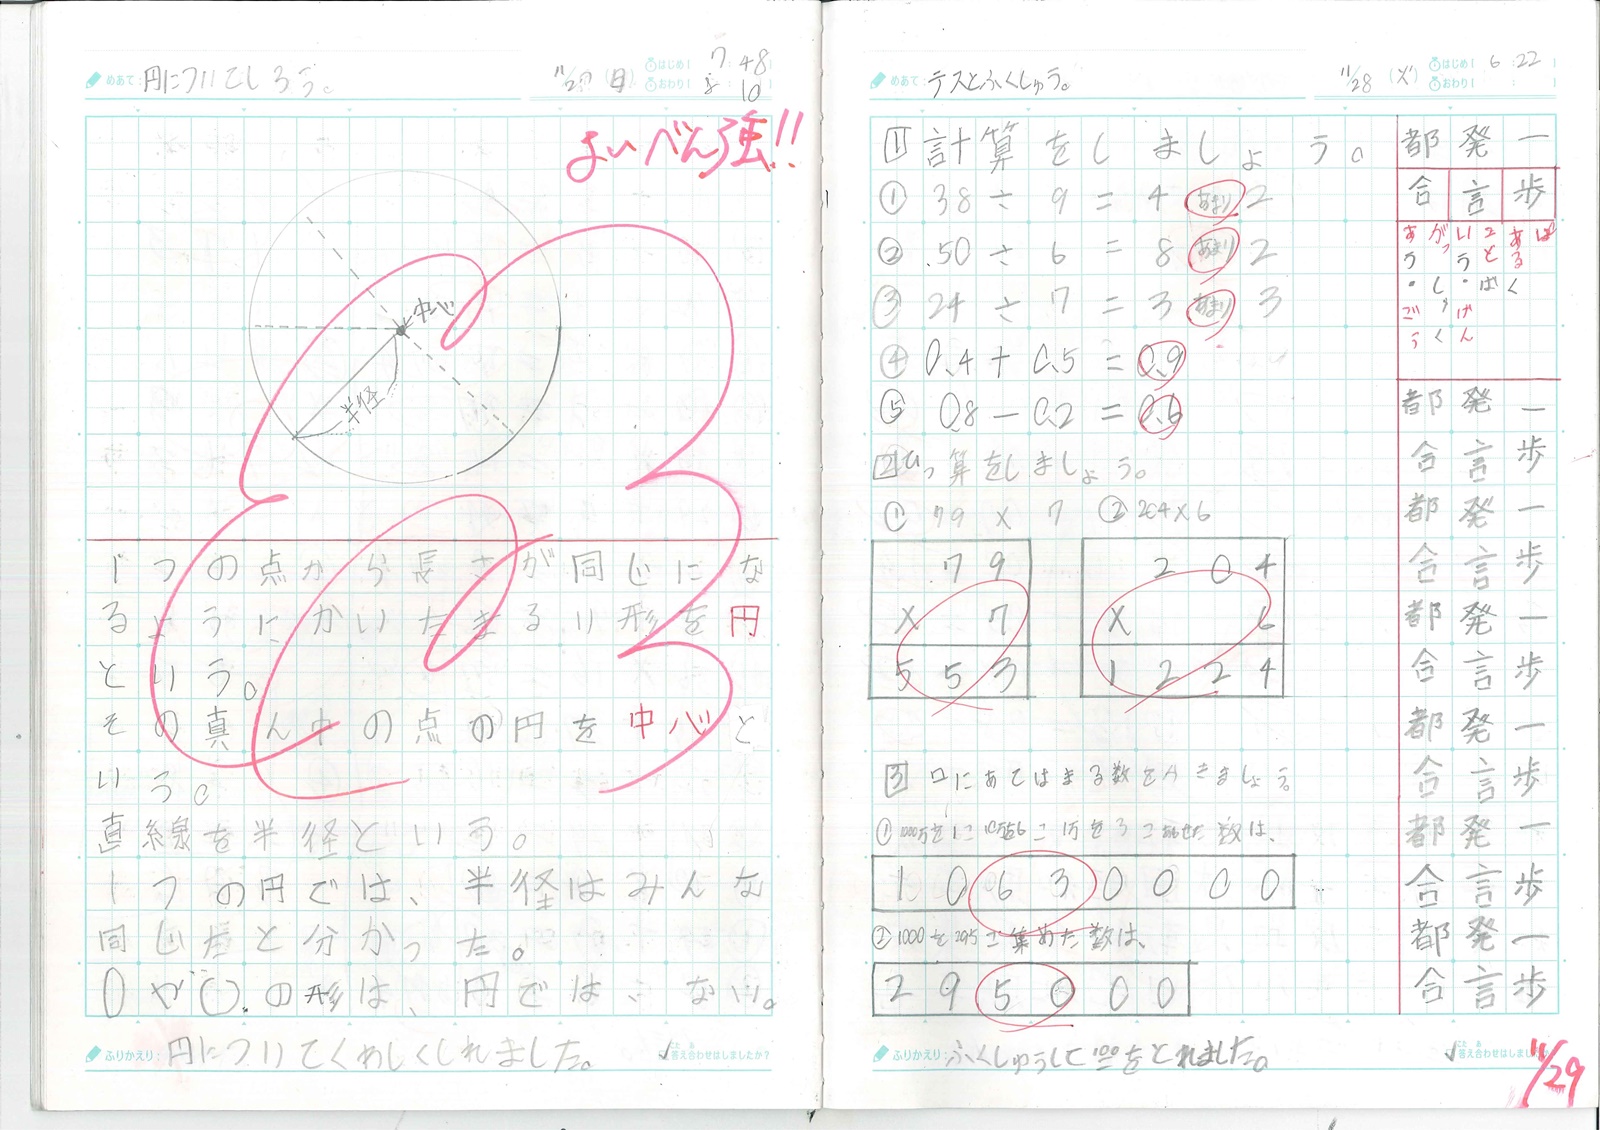 めあて: 円についてしろう。
11/27 (日)
はじめ 7:48
おわり 8:10
よいべん強!!
中心
半径
1つの点から長さが同じにな
るようにかいたまるい形を円
という。
その真ん中の点の円を中心と
いう。
直線を半径という。
1つの円では、半径はみんな
同じだと分かった。
の形は、円ではない。
ふりかえり: 円についてくわしくしれました。
答え合わせはしましたか?
めあて: テストふくしゅう。
11/28 (火)
はじめ 6:22
おわり
1 計算をしましょう。
① 38÷9=4あまり2
② 50÷6=8あまり2
③ 24÷7=3あまり3
④ 0.4+0.5=0.9
⑤ 0.8-0.2=0.6
2 ひっ算をしましょう。
① 79×7 ② 204×6
79
×7
553
204
×6
1224
3 口にあてはまる数をかきましょう。
数は、
10630000
② 1000を295こ集めた数は、
295000
ふりかえり: ふくしゅうして100をとれました。
答え合わせはしました
11/29
都発一
合言歩
あるく
ことば
いう・げん
がっしょう
あう・ごう
都発一
合言歩
都発一
合言歩
都発一
合言歩
都発一
合言歩
都発一
合言歩
都発一
合言歩